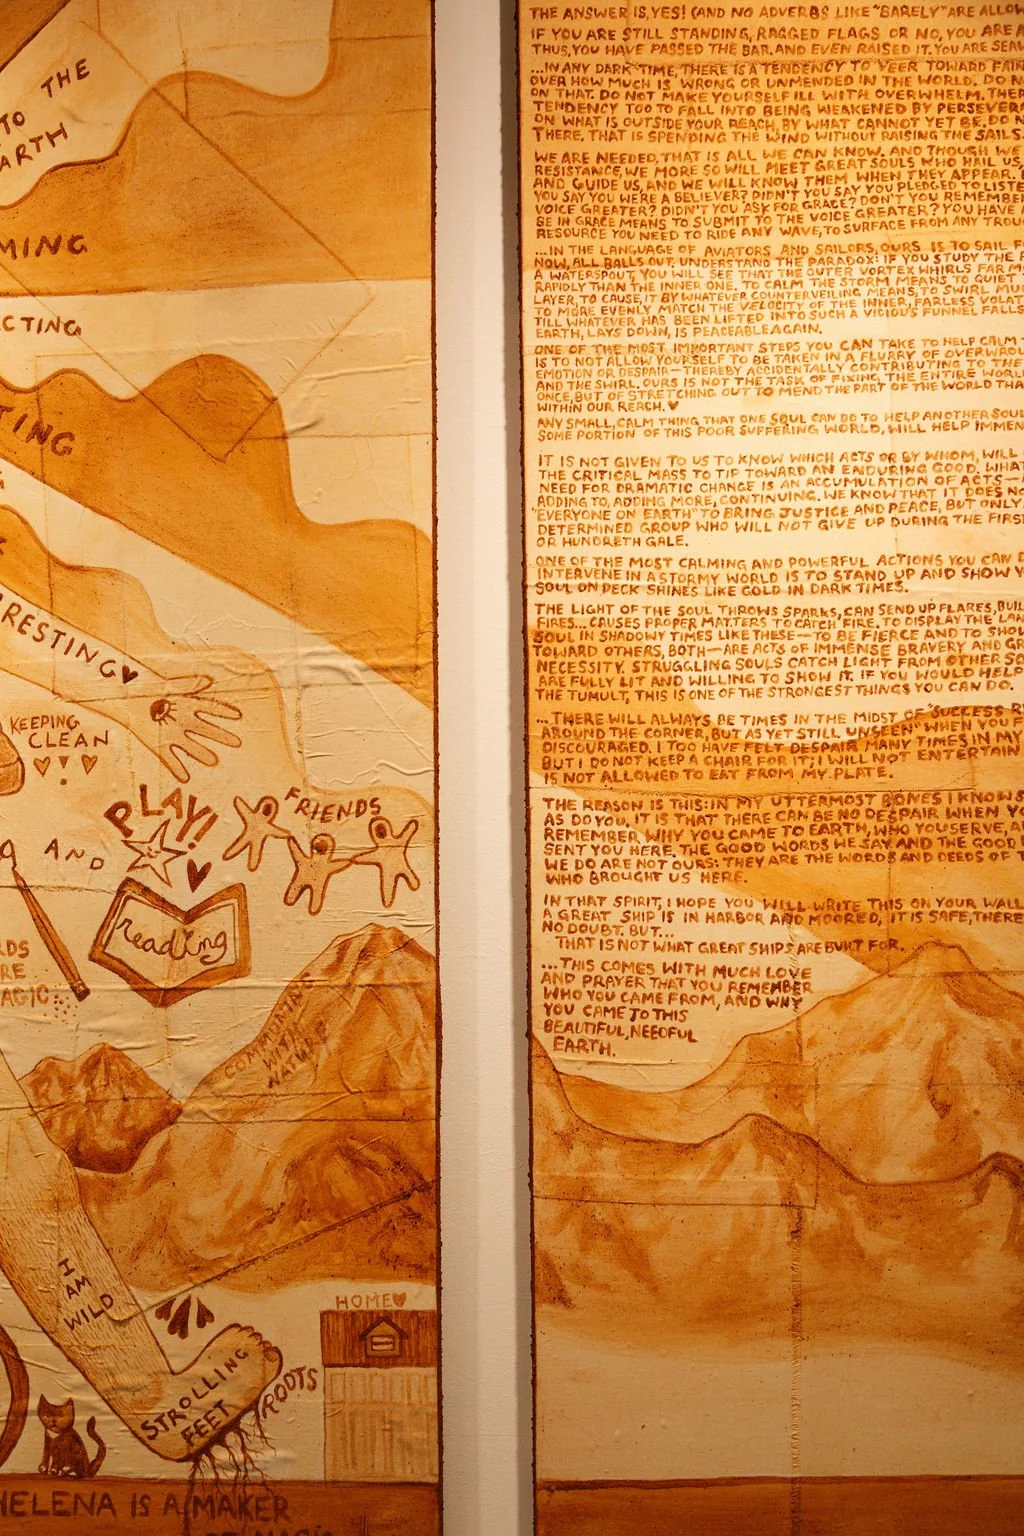 TO THE
TO
EARTH
MING
CTING
TING
RESTING
KEEPING
CLEAN
PLAY!
FRIENDS
AND
reading
RDS
RE
AGIC
COMMUNING
WITH
NATURE
I
AM
WILD
HOME
STROLLING
FEET
ROOTS
HELENA IS A MAKER
THE ANSWER IS, YES! (AND NO ADVERBS LIKE "BARELY" ARE ALLOW
IF YOU ARE STILL STANDING, RAGGED FLAGS OR NO, YOU ARE A
THUS, YOU HAVE PASSED THE BAR. AND EVEN RAISED IT. YOU ARE SEAW
...IN ANY DARK TIME, THERE IS A TENDENCY TO VEER TOWARD FAIN
OVER HOW MUCH IS WRONG OR UNMENDED IN THE WORLD. DO N
ON THAT. DO NOT MAKE YOURSELF ILL WITH OVERWHELM. THER
TENDENCY TOO TO FALL INTO BEING WEAKENED BY PERSEVERA
ON WHAT IS OUTSIDE YOUR REACH, BY WHAT CANNOT YET BE. DO N
THERE. THAT IS SPENDING THE WIND WITHOUT RAISING THE SAILS.
WE ARE NEEDED, THAT IS ALL WE CAN KNOW. AND THOUGH WE
RESISTANCE, WE MORE SO WILL MEET GREAT SOULS WHO HAIL US,
AND GUIDE US, AND WE WILL KNOW THEM WHEN THEY APPEAR.
YOU SAY YOU WERE A BELIEVER? DIDN'T YOU SAY YOU PLEDGED TO LISTE
VOICE GREATER? DIDN'T YOU ASK FOR GRACE? DON'T YOU REMEMBER
BE IN GRACE MEANS TO SUBMIT TO THE VOICE GREATER? YOU HAVE
RESOURCE YOU NEED TO RIDE ANY WAVE, TO SURFACE FROM ANY TROU
...IN THE LANGUAGE OF AVIATORS AND SAILORS, OURS IS TO SAIL F
NOW, ALL BALLS OUT. UNDERSTAND THE PARADOX: IF YOU STUDY THE
A WATERSPOUT, YOU WILL SEE THAT THE OUTER VORTEX WHIRLS FAR M
RAPIDLY THAN THE INNER ONE. TO CALM THE STORM MEANS TO QUIET
LAYER, TO CAUSE, IT BY WHATEVER COUNTERVEILING MEANS, TO SWIRL MU
TO MORE EVENLY MATCH THE VELOCITY OF THE INNER, FAR LESS VOLAT
TILL WHATEVER HAS BEEN LIFTED INTO SUCH A VICIOUS FUNNEL FALLS
EARTH, LAYS DOWN, IS PEACEABLE AGAIN.
ONE OF THE MOST IMPORTANT STEPS YOU CAN TAKE TO HELP CALM
IS TO NOT ALLOW YOURSELF TO BE TAKEN IN A FLURRY OF OVERWROU
EMOTION OR DESPAIR—THEREBY ACCIDENTALLY CONTRIBUTING TO THE
AND THE SWIRL. OURS IS NOT THE TASK OF FIXING THE ENTIRE WORL
ONCE, BUT OF STRETCHING OUT TO MEND THE PART OF THE WORLD THA
WITHIN OUR REACH.
ANY SMALL, CALM THING THAT ONE SOUL CAN DO TO HELP ANOTHER SOUL
SOME PORTION OF THIS POOR SUFFERING WORLD, WILL HELP IMMEN
IT IS NOT GIVEN TO US TO KNOW WHICH ACTS OR BY WHOM, WILL
THE CRITICAL MASS TO TIP TOWARD AN ENDURING GOOD. WHAT
NEED FOR DRAMATIC CHANGE IS AN ACCUMULATION OF ACTS—
ADDING TO, ADDING MORE, CONTINUING. WE KNOW THAT IT DOES NO
"EVERYONE ON EARTH" TO BRING JUSTICE AND PEACE, BUT ONLY
DETERMINED GROUP WHO WILL NOT GIVE UP DURING THE FIRS
OR HUNDRETH GALE.
ONE OF THE MOST CALMING AND POWERFUL ACTIONS YOU CAN D
INTERVENE IN A STORMY WORLD IS TO STAND UP AND SHOW Y
SOUL ON DECK SHINES LIKE GOLD IN DARK TIMES.
THE LIGHT OF THE SOUL THROWS SPARKS, CAN SEND UP FLARES, BUIL
FIRES... CAUSES PROPER MATTERS TO CATCH FIRE. TO DISPLAY THE LAN
SOUL IN SHADOWY TIMES LIKE THESE—TO BE FIERCE AND TO SHOW
TOWARD OTHERS, BOTH—ARE ACTS OF IMMENSE BRAVERY AND GR
NECESSITY. STRUGGLING SOULS CATCH LIGHT FROM OTHER SO
ARE FULLY LIT AND WILLING TO SHOW IT. IF YOU WOULD HELP
THE TUMULT, THIS IS ONE OF THE STRONGEST THINGS YOU CAN DO.
...THERE WILL ALWAYS BE TIMES IN THE MIDST OF "SUCCESS R
AROUND THE CORNER, BUT AS YET STILL UNSEEN" WHEN YOU F
DISCOURAGED. I TOO HAVE FELT DESPAIR MANY TIMES IN MY
BUT I DO NOT KEEP A CHAIR FOR IT; I WILL NOT ENTERTAIN
IS NOT ALLOWED TO EAT FROM MY PLATE.
THE REASON IS THIS: IN MY UTTERMOST BONES I KNOW S
AS DO YOU. IT IS THAT THERE CAN BE NO DESPAIR WHEN YO
REMEMBER WHY YOU CAME TO EARTH, WHO YOU SERVE, A
SENT YOU HERE. THE GOOD WORDS WE SAY AND THE GOOD
WE DO ARE NOT OURS: THEY ARE THE WORDS AND DEEDS OF T
WHO BROUGHT US HERE.
IN THAT SPIRIT, I HOPE YOU WILL WRITE THIS ON YOUR WALL
A GREAT SHIP IS IN HARBOR AND MOORED, IT IS SAFE, THERE
NO DOUBT. BUT...
THAT IS NOT WHAT GREAT SHIPS ARE BUILT FOR.
...THIS COMES WITH MUCH LOVE
AND PRAYER THAT YOU REMEMBER
WHO YOU CAME FROM, AND WHY
YOU CAME TO THIS
BEAUTIFUL, NEEDFUL
EARTH.